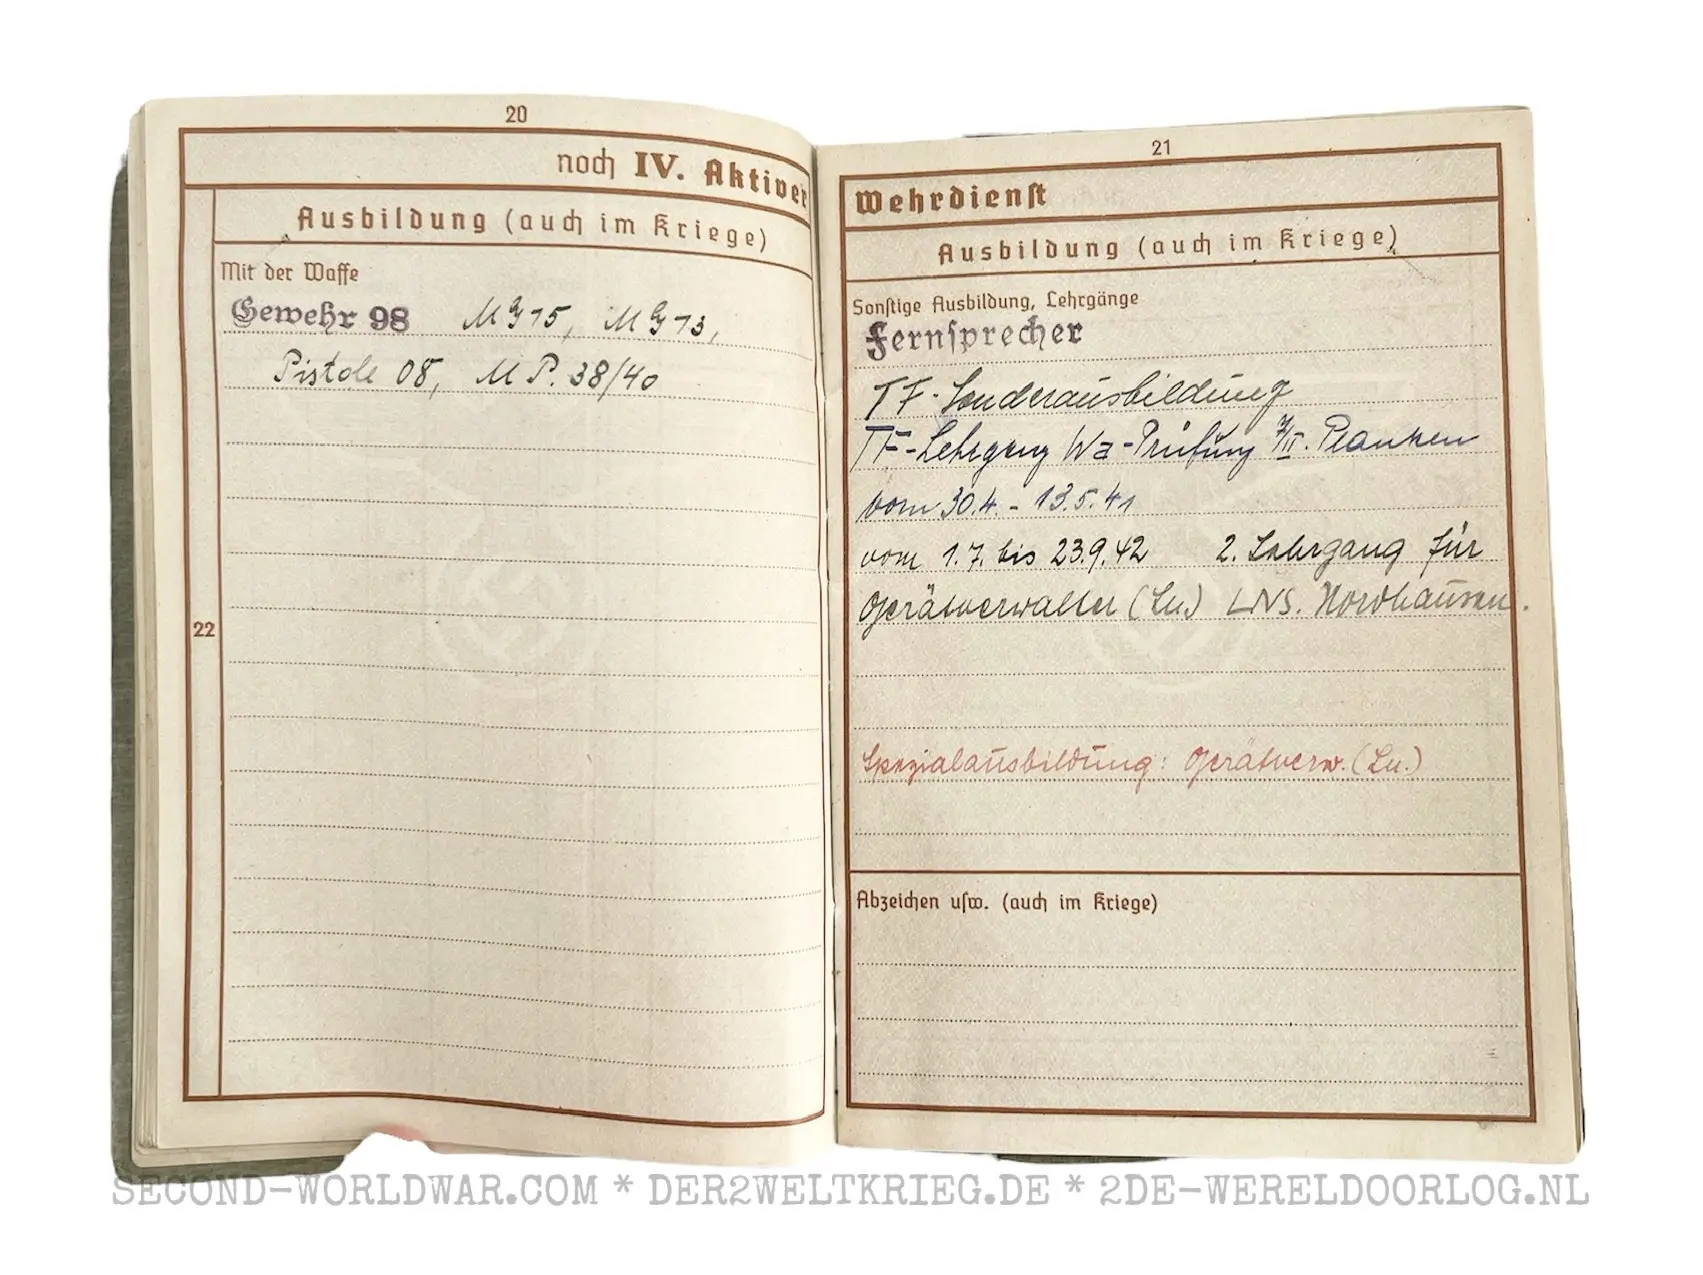 20
noch IV. Aktiver
Ausbildung (auch im Kriege)
Mit der Waffe
Gewehr 98 MG 15, MG 13,
Pistole 08, M P. 38/40
22
21
Wehrdienst
Ausbildung (auch im Kriege)
Sonstige Ausbildung, Lehrgänge
Fernsprecher
TF-Sonderausbildung
TF-Lehrgang Wa-Prüfung
vom 30.4. - 13.5.41
vom 1.7. bis 23.9.42 2. Lehrgang für
Gerätverwalter (Ln.) LNS. Nordhausen.
Spezialausbildung: Gerätverw. (Ln.)
Abzeichen usw. (auch im Kriege)
SECOND-WORLDWAR.COM * DER2WELTKRIEG.DE * 2DE-WERELDOORLOG.NL